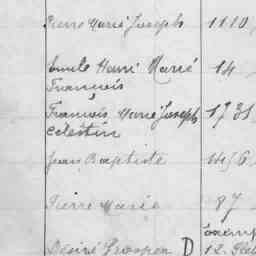 Pierre Marie Joseph 1110
Emile Henri Marie 14
François
François Marie Joseph 1731
Celestin
Jean Baptiste 1456
Pierre Marie 87
Désiré Prosper D 12.